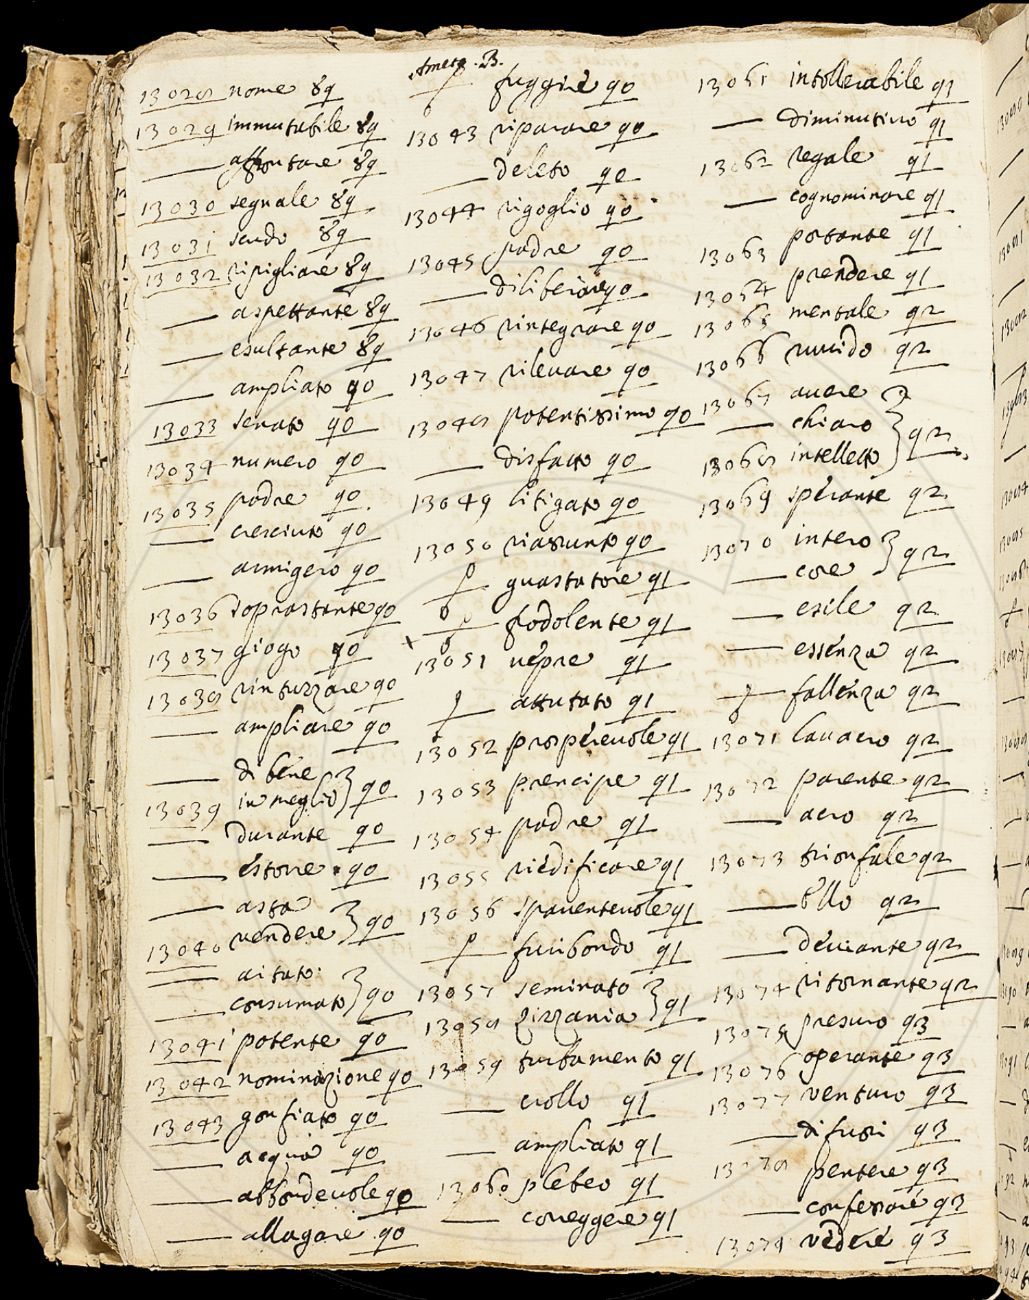 Ameto. B.
13028 nome 89
13029 immutabile 89
—— affrontare 89
13030 segnale 89
13031 scudo 89
13032 ripigliare 89
—— aspettante 89
—— esultante 89
—— ampliato 90
13033 senato 90
13034 numero 90
13035 padre 90
—— cresciuto 90
—— armigero 90
13036 soprastante 90
13037 giogo 90
13038 rintuzzare 90
—— ampliare 90
—— di bene
13039 in meglio } 90
—— durante 90
—— estorre 90
—— asta
13040 rendere } 90
—— aitato
—— consumato } 90
13041 potente 90
13042 nominazione 90
13043 gonfiato 90
—— acqua 90
—— abbondevole 90
—— allagare 90
—— fuggire 90
13043 riparare 90
—— deleto 90
13044 rigoglio 90
13045 padre 90
—— diliberare 90
13046 rintegrare 90
13047 rilevare 90
13048 potentissimo 90
—— disfatto 90
13049 litigato 90
13050 riassunto 90
—— guastatore 91
—— fodolente 91
13051 vepre 91
—— attutato 91
13052 prosperevole 91
13053 prencipe 91
13054 padre 91
13055 riedificare 91
13056 spaventevole 91
—— furibondo 91
13057 seminato
13058 zizzania } 91
13059 turbamento 91
—— crollo 91
—— ampliato 91
13060 plebeo 91
—— coreggere 91
13061 intollerabile 91
—— diminutivo 91
13062 regale 91
—— cognominare 91
13063 portante 91
13064 prendere 91
13065 mentale 92
13066 ruvido 92
13067 avere
—— chiaro
13068 intelletto } 92
13069 sperante 92
13070 intero
—— core } 92
—— esile 92
—— essenza 92
—— fallenza 92
13071 lavacro 92
13072 parente 92
—— acro 92
13073 trionfale 92
—— bello 92
—— deviante 92
13074 ritornante 92
13075 presuro 93
13076 operante 93
13077 venturo 93
—— difusi 93
13078 pentere 93
—— confessare 93
13079 vedere 93